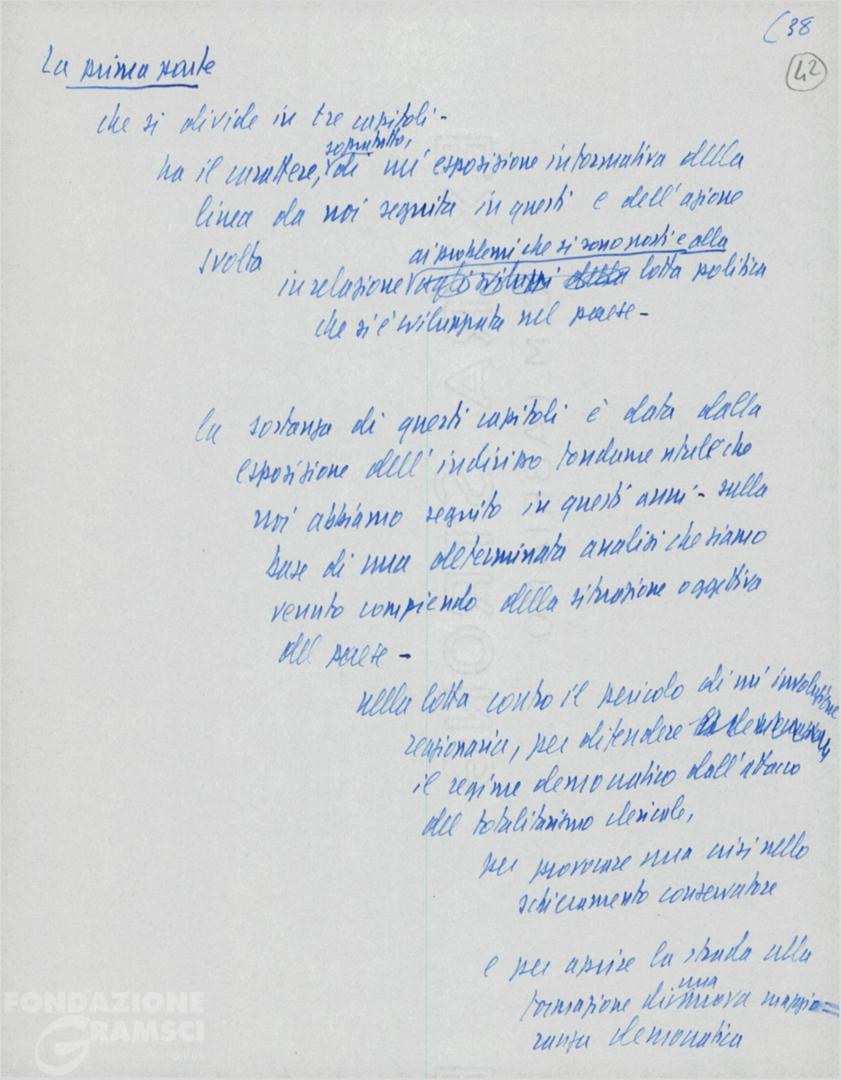 (38
42
La prima parte
che si divide in tre capitoli -
soprattutto,
ha il carattere, di un'esposizione informativa della
linea da noi seguita in questi e dell'azione
svolta
ai problemi che si sono posti e alla
in relazione agli sviluppi della lotta politica
che si è sviluppata nel paese -
la sostanza di questi capitoli è data dalla
esposizione dell'indirizzo fondamentale che
noi abbiamo seguito in questi anni - sulla
base di una determinata analisi che siamo
venuto compiendo della situazione oggettiva
del paese -
nella lotta contro il pericolo di un'involuzione
reazionaria, per difendere la
il regime democratico dall'attacco
del totalitarismo clericale,
per provocare una crisi nello
schieramento conservatore
e per aprire la strada alla
una
formazione di nuova maggio=
ranza democratica
FONDAZIONE
GRAMSCI